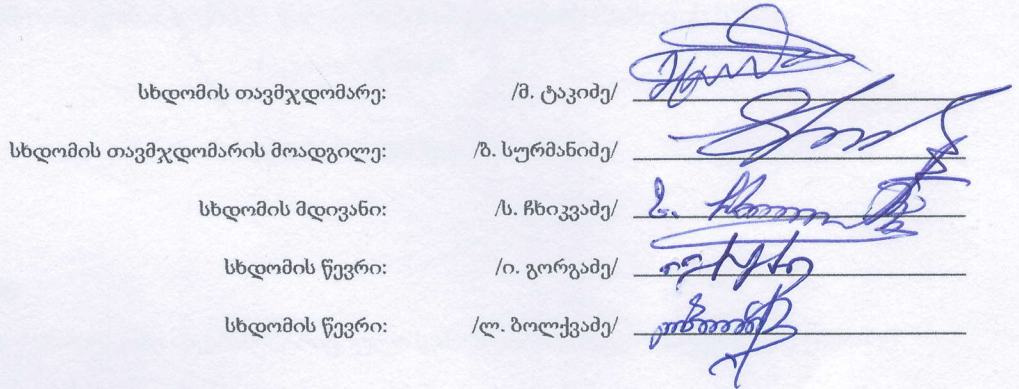 სხდომის თავმჯდომარე: /მ. ტაკიძე/
სხდომის თავმჯდომარის მოადგილე: /ზ. სურმანიძე/
სხდომის მდივანი: /ს. ჩხიკვაძე/
სხდომის წევრი: /ი. გორგაძე/
სხდომის წევრი: /ლ. ბოლქვაძე/